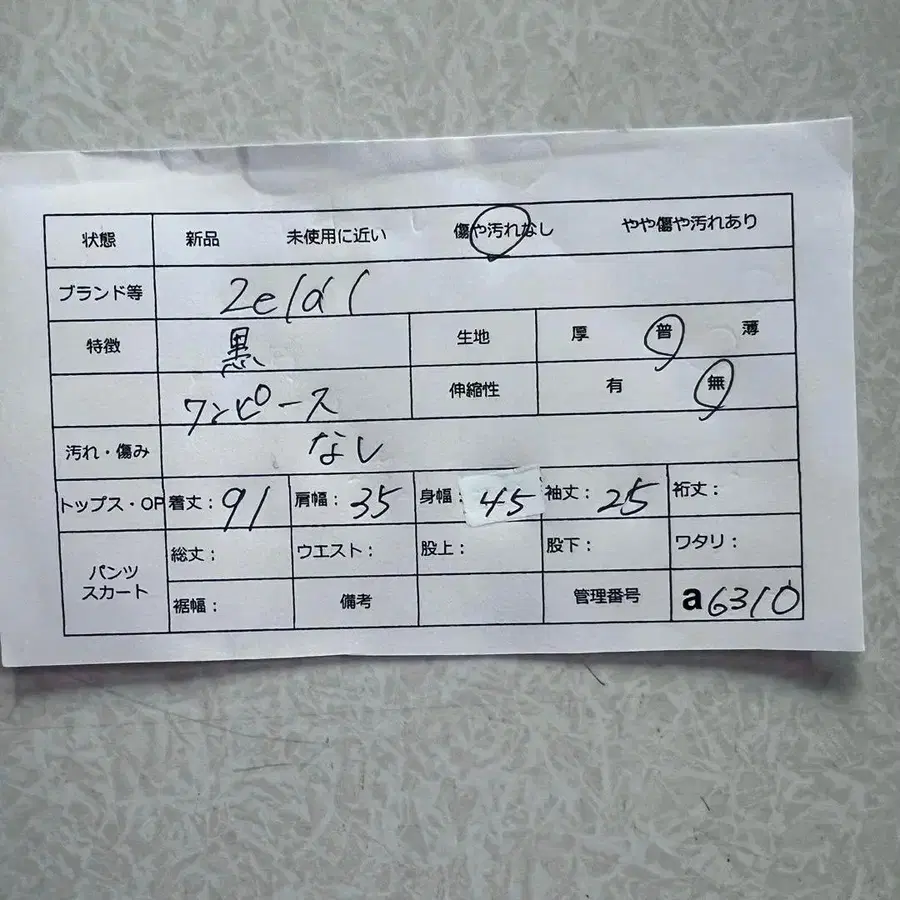 状態 新品 未使用に近い 傷や汚れなし やや傷や汚れあり
ブランド等
特徴 黒 生地 厚 普 薄
ワンピース 伸縮性 有 無
汚れ・傷み なし
トップス・OP 着丈：91 肩幅：35 身幅：45 袖丈：25 裄丈：
パンツ 総丈： ウエスト： 股上： 股下： ワタリ：
スカート 裾幅： 備考 管理番号 a6310